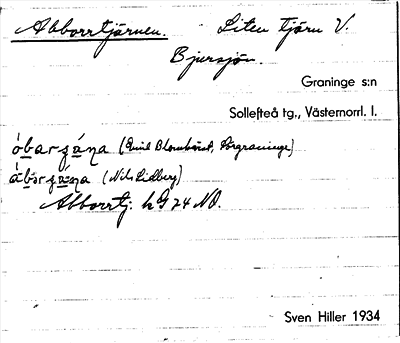 Abborrtjärnen. Liten tjärn V.
Bjursjön.
Graninge s:n
Sollefteå tg., Västernorrl. l.
(Emil Blomkvist, Förgraninge)
(Nils Lidberg)
Abborrtj. h G 24 NO.
Sven Hiller 1934